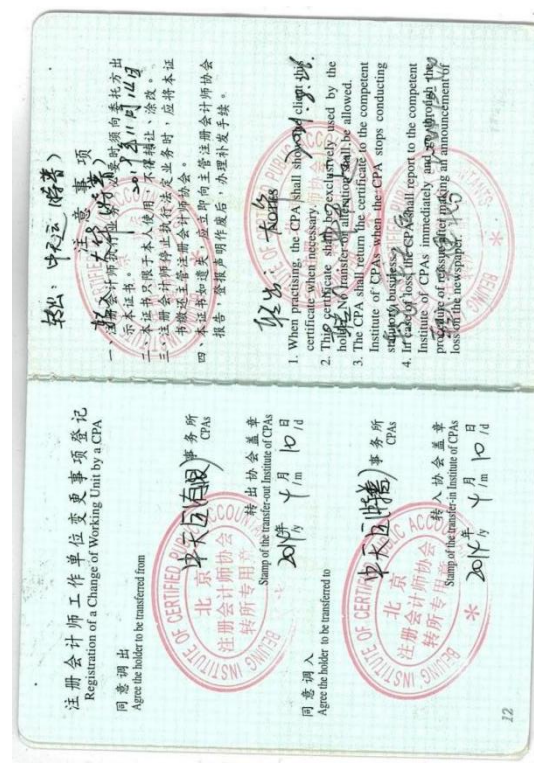 注册会计师工作单位变更事项登记
Registration of a Change of Working Unit by a CPA
同意调出
Agree the holder to be transferred from
中天运(有限)事务所
CPAs
BEIJING INSTITUTE OF CERTIFIED PUBLIC ACCOUNTANTS
北京
注册会计师协会
转所专用章
转出协会盖章
Stamp of the transfer-out Institute of CPAs
2014年 4月 10日
/y /m /d
同意调入
Agree the holder to be transferred to
中天运(特普)事务所
CPAs
BEIJING INSTITUTE OF CERTIFIED PUBLIC ACCOUNTANTS
北京
注册会计师协会
转所专用章
转入协会盖章
Stamp of the transfer-in Institute of CPAs
2014年 4月 10日
/y /m /d
12
转出:中天运(特普)
注意事项
2017年11月14日
一、注册会计师执行业务,必要时须向委托方出
示本证书。
二、本证书只限于本人使用,不得转让、涂改。
三、注册会计师停止执行法定业务时,应将本证
书缴还主管注册会计师协会。
四、本证书如遗失,应立即向主管注册会计师协会
报告,登报声明作废后,办理补发手续。
Notes
1. When practising, the CPA shall show the client this
certificate when necessary.
2. This certificate shall be exclusively used by the
holder. No transfer or alteration shall be allowed.
3. The CPA shall return the certificate to the competent
Institute of CPAs when the CPA stops conducting
statutory business.
4. In case of loss, the CPA shall report to the competent
Institute of CPAs immediately and go through the
procedure of reissue after making an announcement of
loss on the newspaper.